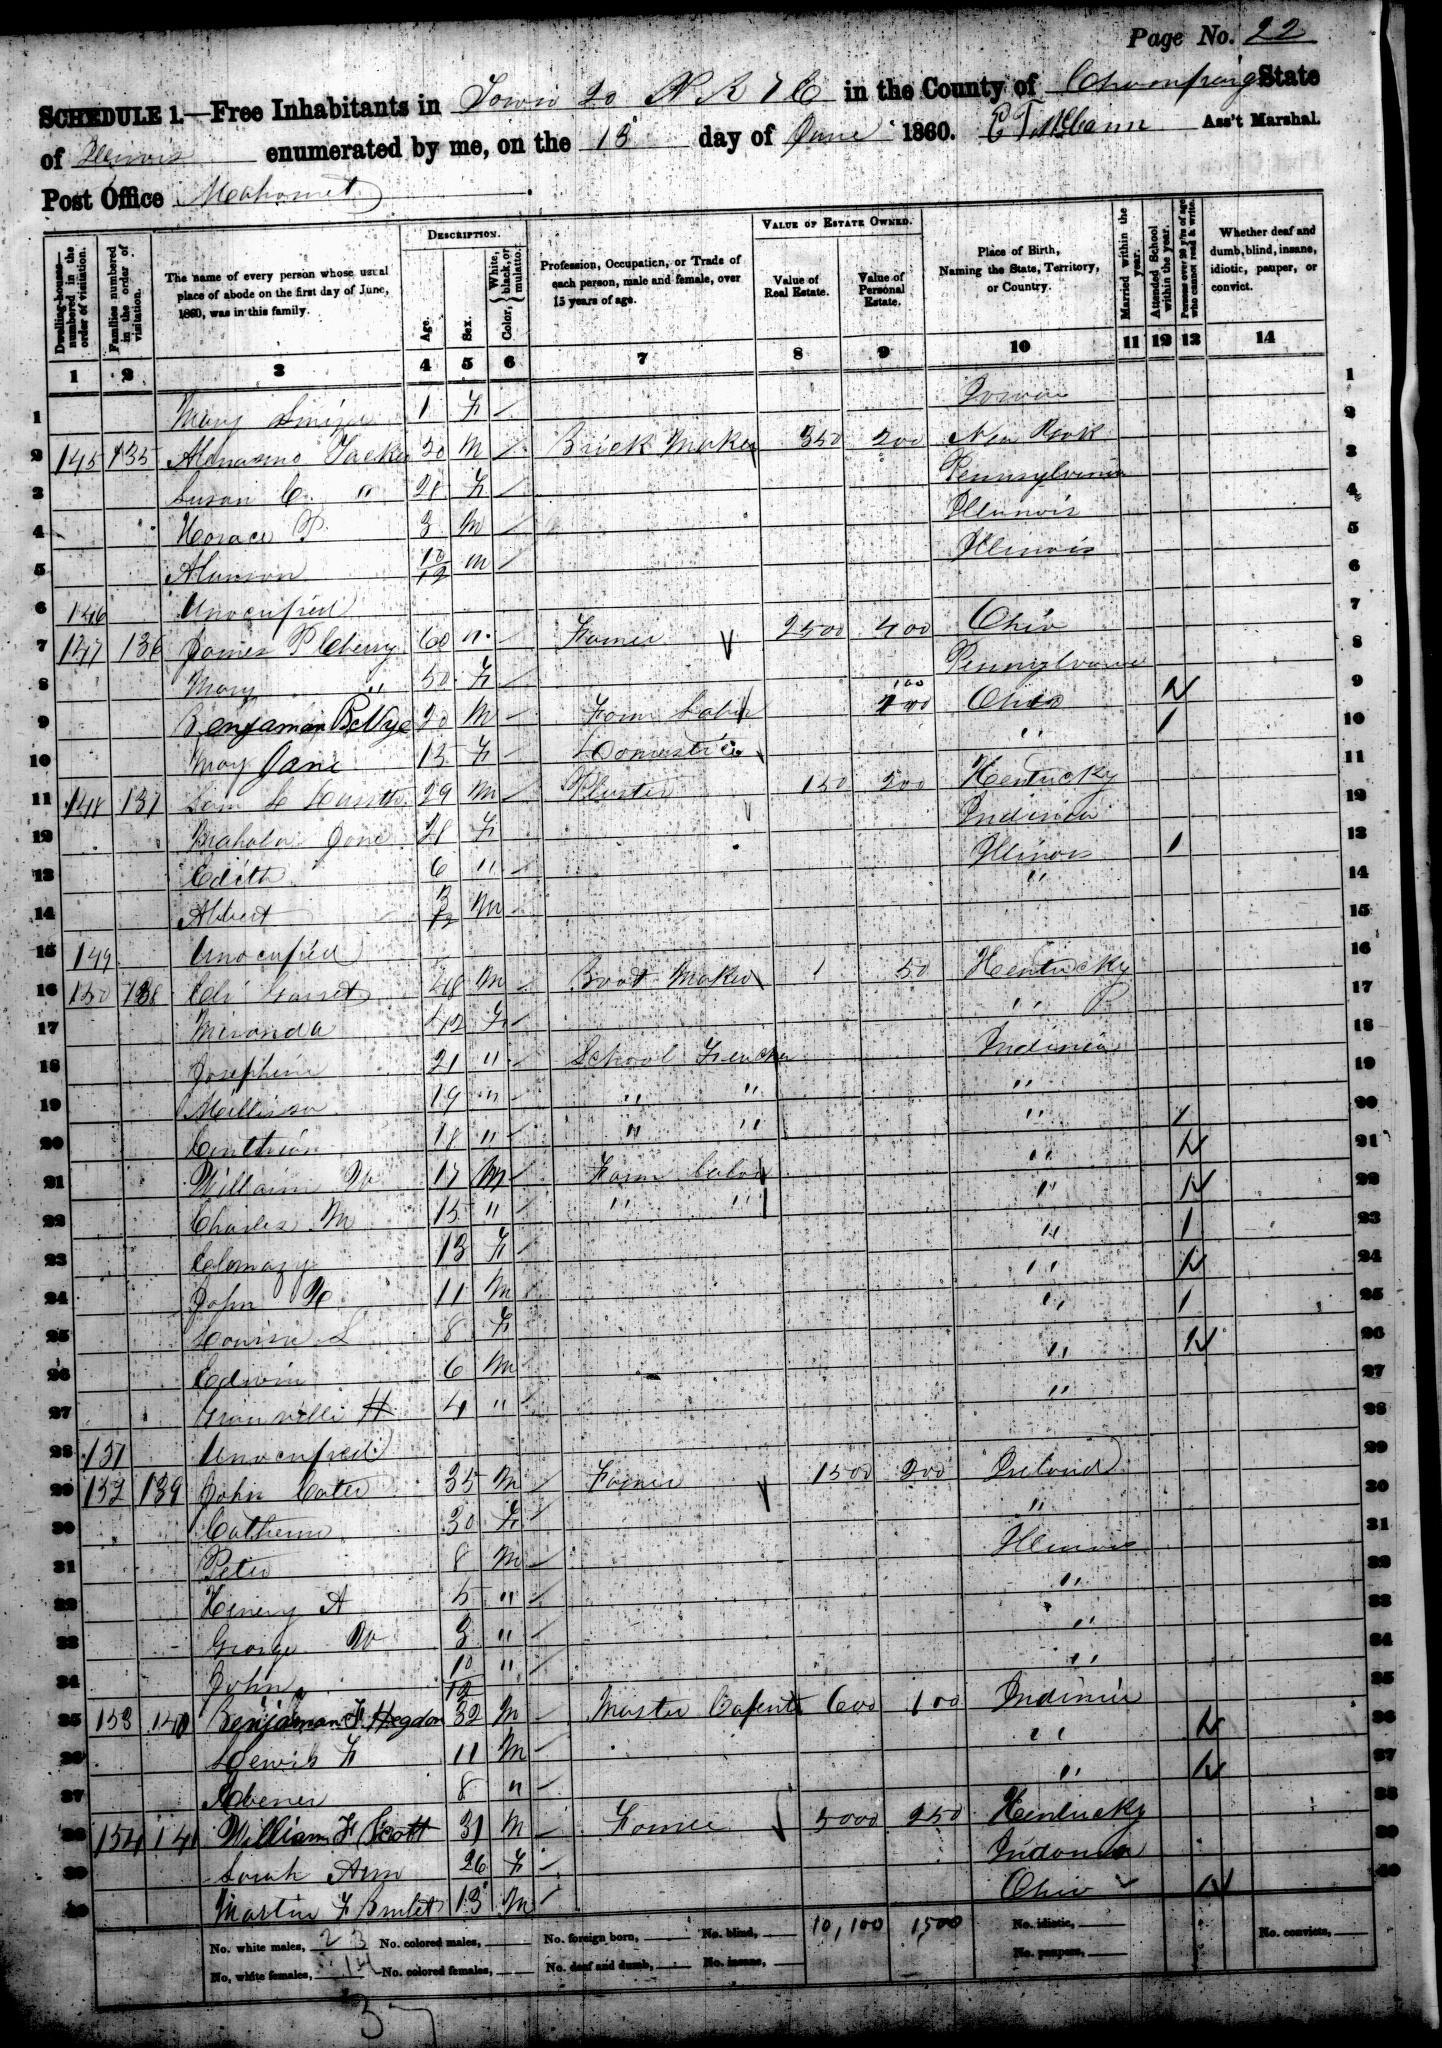 Page No. 22
SCHEDULE 1.—Free Inhabitants in Town 20 N R 7 E in the County of Champaign State
of Illinois enumerated by me, on the 13 day of June 1860. Ass't Marshal.
Post Office Mahomet
DESCRIPTION.
VALUE OF ESTATE OWNED.
Dwelling-houses—numbered in the order of visitation.
Families numbered in the order of visitation.
The name of every person whose usual place of abode on the first day of June, 1860, was in this family.
Age.
Sex.
Color, White, black, or mulatto.
Profession, Occupation, or Trade of each person, male and female, over 15 years of age.
Value of Real Estate.
Value of Personal Estate.
Place of Birth, Naming the State, Territory, or Country.
Married within the year.
Attended School within the year.
Persons over 20 y'rs of age who cannot read & write.
Whether deaf and dumb, blind, insane, idiotic, pauper, or convict.
1 2 3 4 5 6 7 8 9 10 11 12 13 14
1 Mary 1 F / 1
2 145 135 20 M / Brick Maker 350 200 New York 2
3 Susan C. " 28 F / Pennsylvania 3
4 Horace P. 3 M / Illinois 4
5 Alanson 10/12 M / Illinois 5
6 146 Unocupied 6
7 147 136 James P Cherry 60 Farmer 2500 400 Ohio 7
8 Mary " 50 F Pennsylvania 8
9 Benjaman 20 M Farm Labr 100 Ohio 9
10 May Jane 15 F Domestic " 1 10
11 148 137 29 M 150 200 Kentucky 11
12 Jane 28 F Indinia 12
13 Edith 6 " Illinois 1 13
14 Albert 3/12 M " 14
15 149 Unocupied 15
16 150 138 Eli 48 M Boot Maker 1 50 Kentucky 16
17 Miranda 42 F " 17
18 Josephine 21 " School Teacher Indinia 18
19 Millissa 19 " " " " 19
20 18 " " " " 1 20
21 William W 17 M Farm Labor " 21
22 Charles M 15 " " " " 22
23 13 F " 1 23
24 John 11 M " 24
25 Louisa L 8 F " 1 25
26 Edwin 6 M " 26
27 Granville H 4 " " 27
28 151 Unocupied 28
29 152 139 John Cater 35 M Farmer 1500 200 Ireland 29
30 Catherin 30 F " 30
31 Peter 8 M Illinois 31
32 Henery A 5 " " 32
33 George W 3 " " 33
34 John 10/12 " " 34
35 153 140 Benjaman F. Hegdon 32 M Master Capente 600 100 Indinia 35
36 Lewis F 11 M " 36
37 Abener 8 " " 37
38 154 141 William F Scott 31 M Farmer 5000 250 Kentucky 38
39 Sarah Ann 26 F 39
40 Martin F 13 M Ohio 40
No. white males, 23 No. colored males, No. foreign born, No. blind, 10,100 1500 No. idiotic, No. convicts,
No. white females, 14 No. colored females, No. deaf and dumb, No. insane, No. paupers,
37